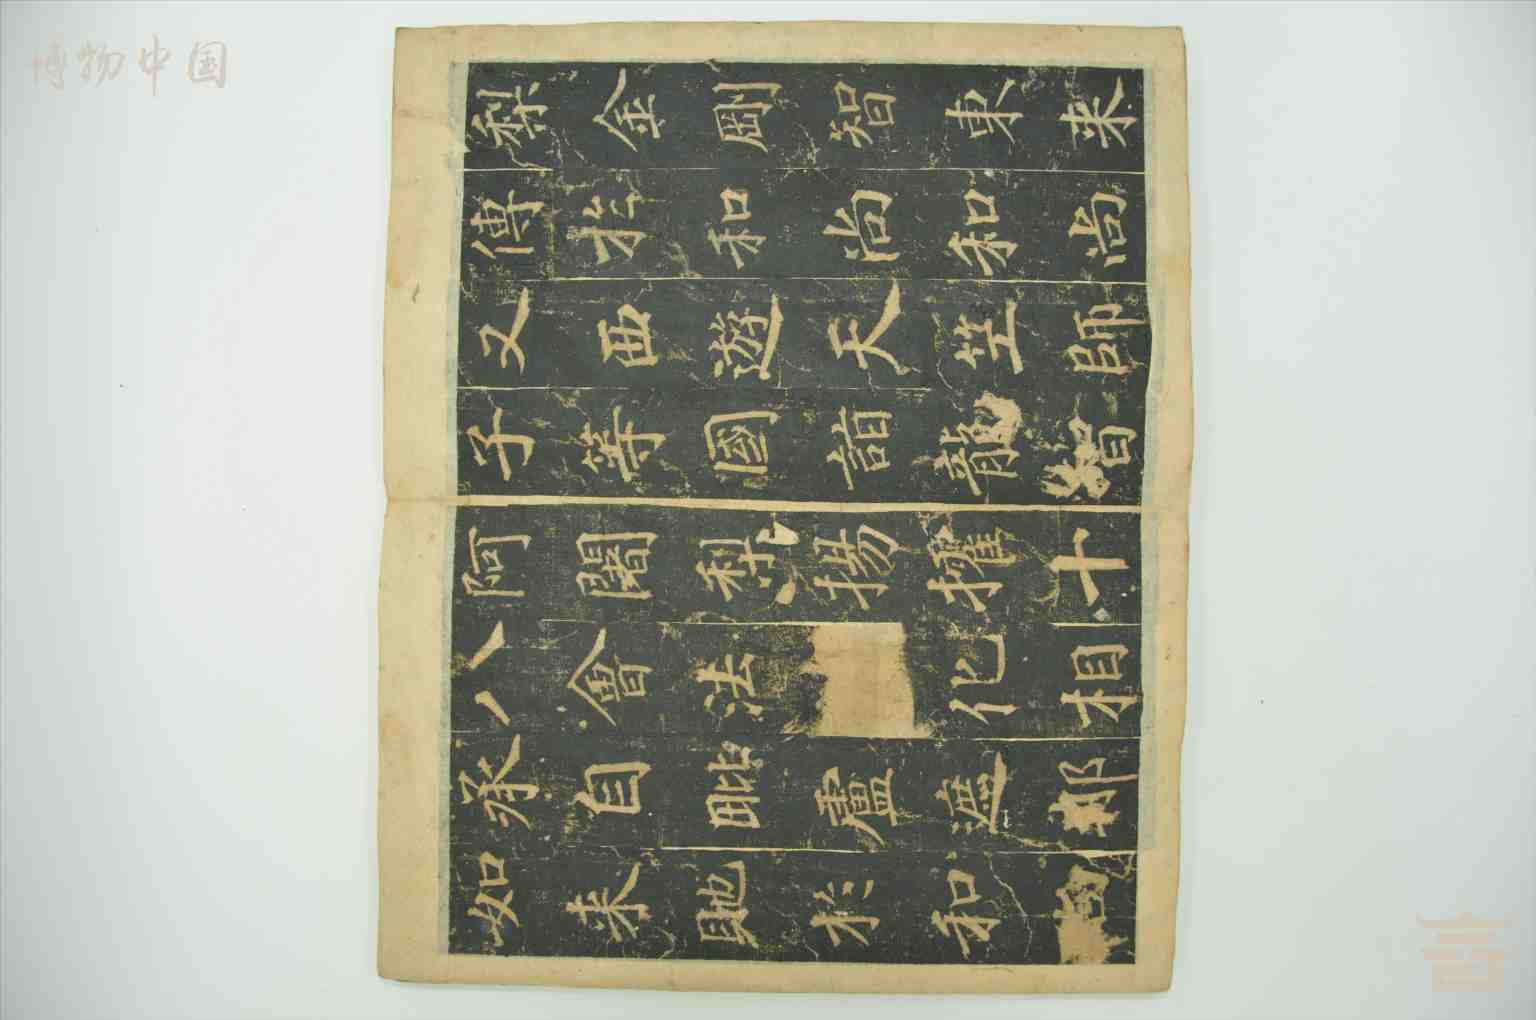 博物中国
梨金剛智東來
傳於和尚和尚
又西遊天竺師
子等國詣龍智
阿闍梨揚攉十
八會法化相
承自毗盧遮那
如來貽於和尚